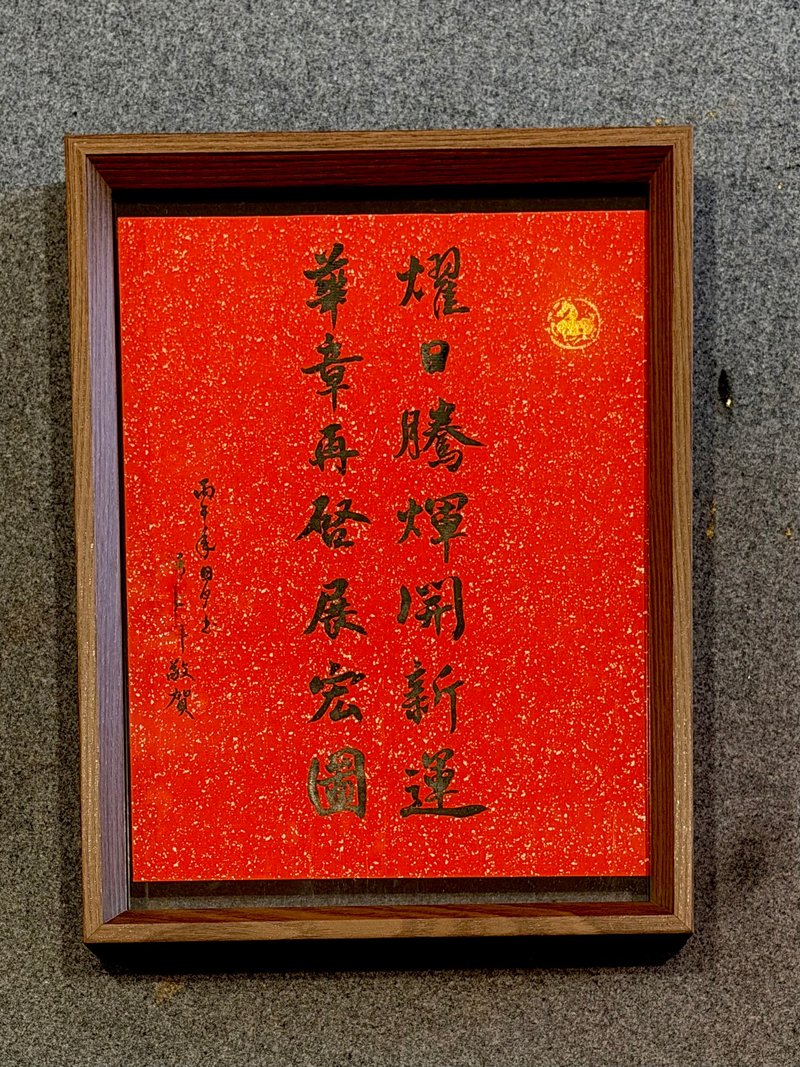 燿日騰輝開新運
華章再啓展宏圖
丙午年
敬賀